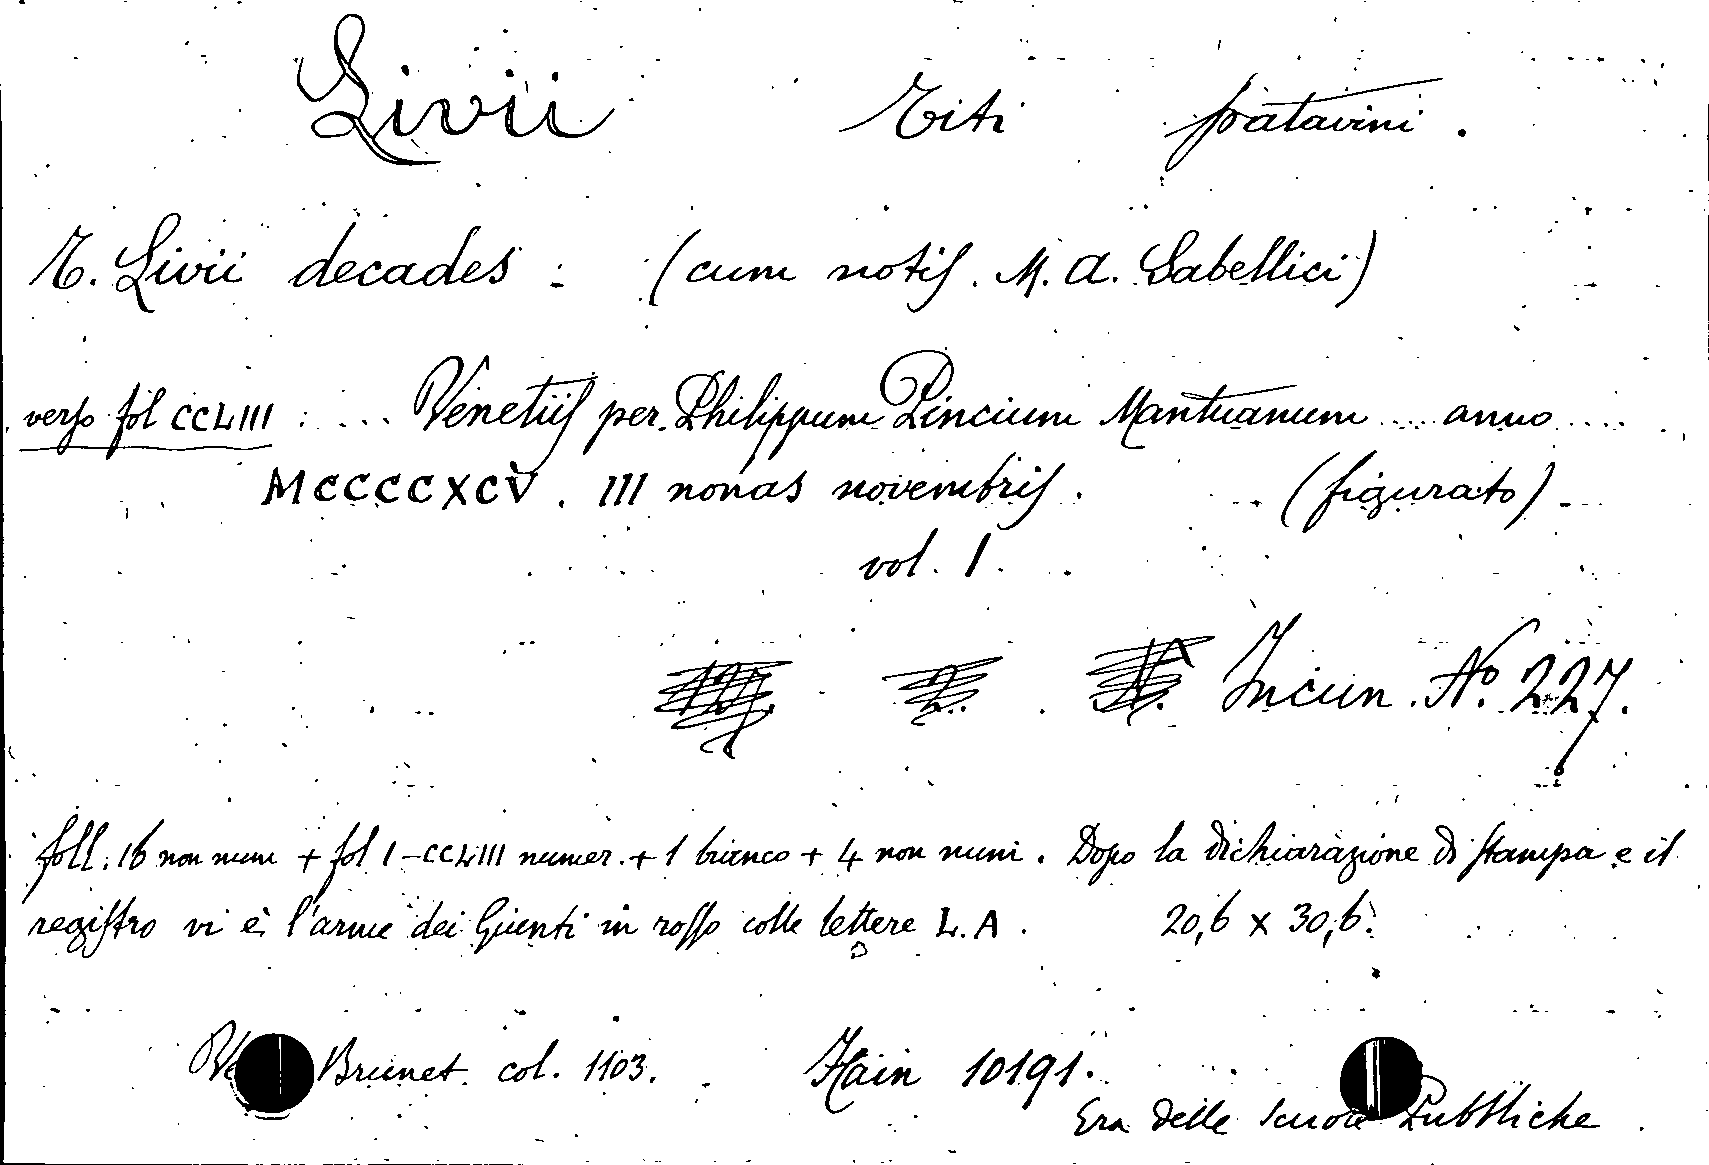 Livii Titi patavini.
T. Livii decades : (cum notis. M. A. Sabellici)
verso fol CCLIII : ... Venetiis per Philippum Pincium Mantuanum ... anno ....
MCCCCXCV. III nonas novembris. (figurato)
vol. I.
Incun. No. 227.
foll. 16 non num + fol I-CCLIII numer. + 1 bianco + 4 non num. Dopo la dichiarazione di stampa e il
registro vi è l'arme dei Giunti in rosso colle lettere L. A. 20,6 x 30,6.
Brunet. col. 1103. Hain 10191.
Era delle Scuole Pubbliche